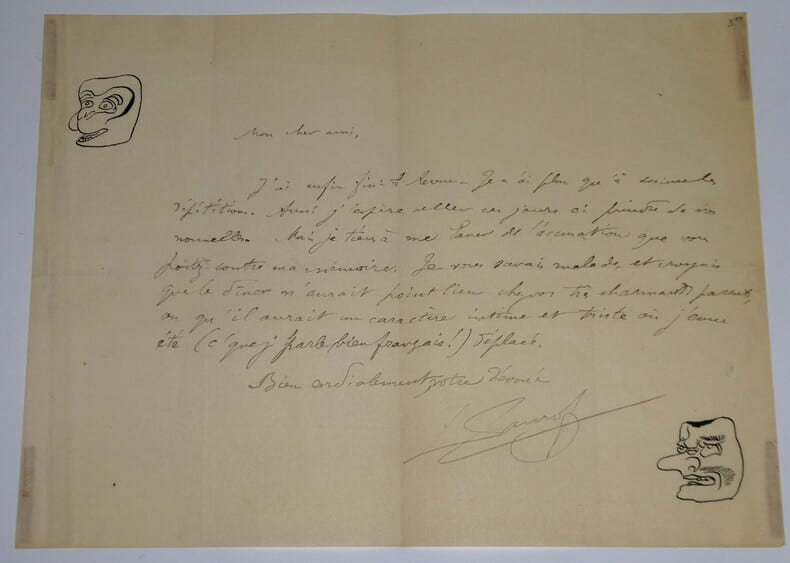 Mon cher ami,
J'ai enfin fini la Revue. Je n'ai plus qu'à suivre les
répétitions. Aussi j'espère aller ces jours ci prendre de vos
nouvelles. Mais je tiens à me laver de l'accusation que vous
portez contre ma mémoire. Je vous savais malade, et croyais
que le dîner n'aurait point lieu chez vos très charmants parents,
ou qu'il aurait un caractère intime et triste où j'eusse
été (c'que j'parle bien français!) déplacé.
Bien cordialement votre dévoué